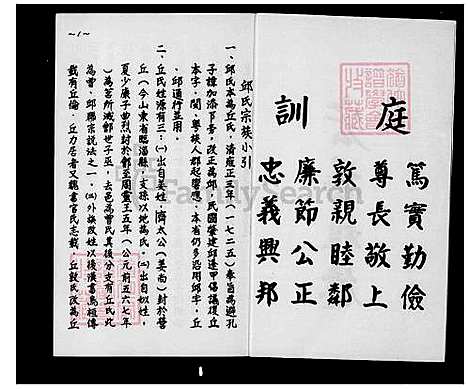 庭訓
篤實勤儉
尊長敬上
敦親睦鄰
廉節公正
忠義興邦
邱氏宗族小引
一、邱氏本為丘氏，清雍正三年（一七二五）奉旨為避孔
子諱加添「阝」旁，改正為邱，民國肇建邱逢甲倡議復
本字，閩、粵族人群起響應，本省仍多沿用邱字，丘
、邱通行並用。
二、丘氏姓源有三：㈠出自姜姓，齊太公（姜尚）封於營
丘（今山東省臨淄縣）支孫以地為氏，㈡出自姒姓，
夏少康子曲烈封於鄫至周靈王五年（公元前五六七年
）為莒所滅鄫世子巫，去邑為曾氏其後分支有丘氏此
為曾、邱聯宗說法之一，㈢外族改姓以後漢書烏桓傳
載有丘倫，丘力居者又魏書官氏志載，丘敦氏改為丘
~1~
FamilySearch